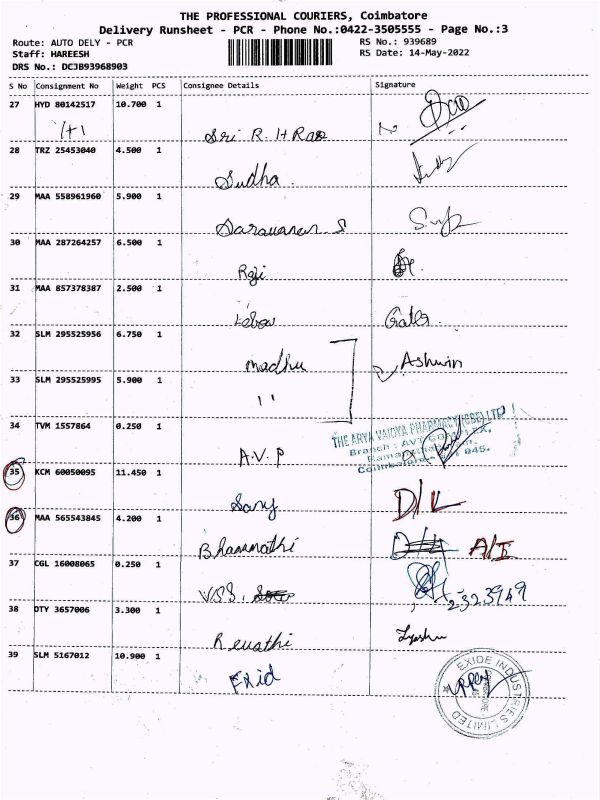 THE PROFESSIONAL COURIERS, Coimbatore
Delivery Runsheet - PCR - Phone No.:0422-3505555 - Page No.:3
Route: AUTO DELY - PCR
RS No.: 939689
Staff: HAREESH
RS Date: 14-May-2022
DRS No.: DCJB93968903
S No Consignment No Weight PCS Consignee Details Signature
27 HYD 80142517 10.700 1
1+1 Sri R. H Rao
28 TRZ 25453040 4.500 1
Sudha
29 MAA 558961960 5.900 1
Saravanan S
30 MAA 287264257 6.500 1
Raji
31 MAA 857378387 2.500 1
32 SLM 295525956 6.750 1
Madhu Ashwin
33 SLM 295525995 5.900 1
11
34 TVM 1557864 0.250 1
THE ARYA VAIDYA PHARMACY (CBE) LTD
Branch: AVT COMPLEX,
A.V.P
35 KCM 60050095 11.450 1
D/L
36 MAA 565543845 4.200 1
D/L
37 CGL 16008065 0.250 1
VSS. 2323949
38 OTY 3657006 3.300 1
Revathi
39 SLM 5167012 10.900 1
Exid
EXIDE INDUSTRIES LIMITED